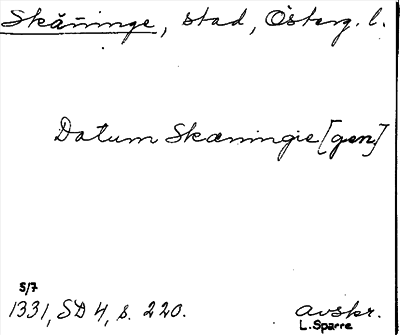 Skänninge, stad, Österg. l.
Datum Skæningie [gen]
5/7
1331, SD 4, s. 220.
avskr.
L. Sparre